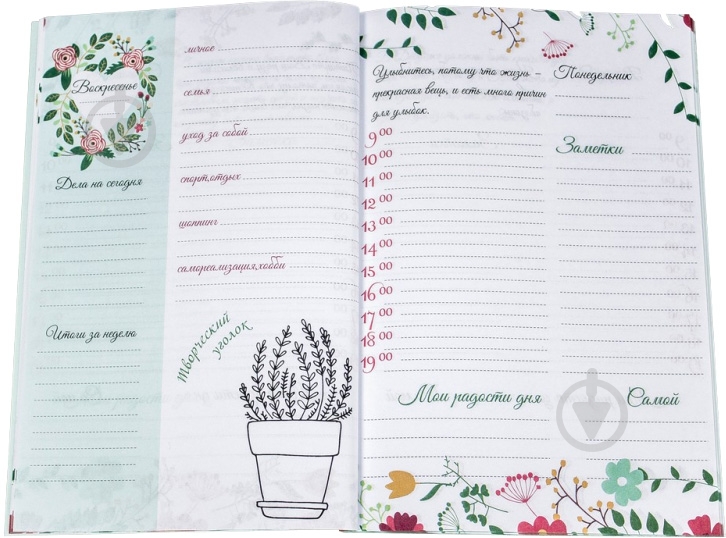 Воскресенье
Дела на сегодня
Итоги за неделю
личное
семья
уход за собой
спорт,отдых
шоппинг
самореализация,хобби
Творческий
уголок
Улыбнитесь, потому что жизнь –
прекрасная вещь, и есть много причин
для улыбок.
9 00
10 00
11 00
12 00
13 00
14 00
15 00
16 00
17 00
18 00
19 00
Понедельник
Заметки
Мои радости дня
Самой